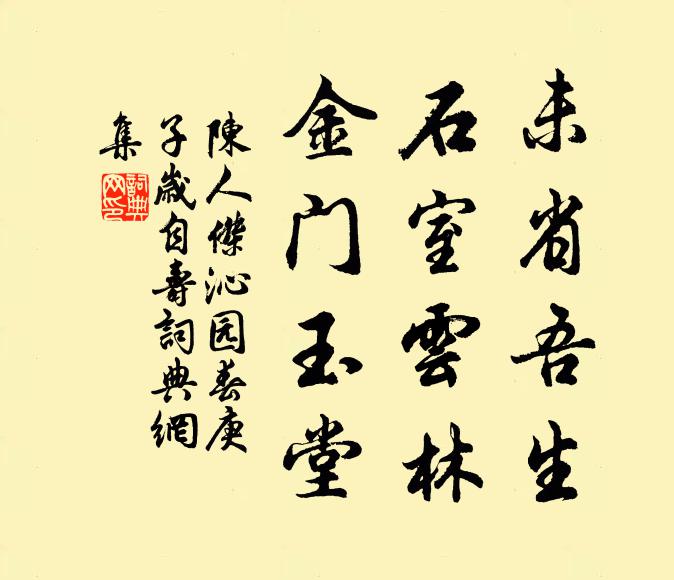 未省吾生
石室雲林
金门玉堂
陳人傑沁园春庚
子歲自壽詞典網
集
詞典
网印